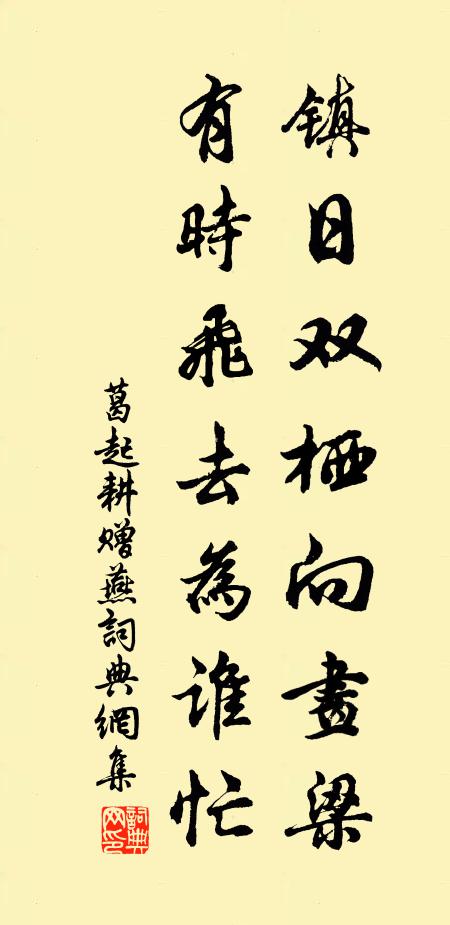 镇日双栖向畫梁
有時飛去為誰忙
葛起耕贈燕詞典網集
詞典網印